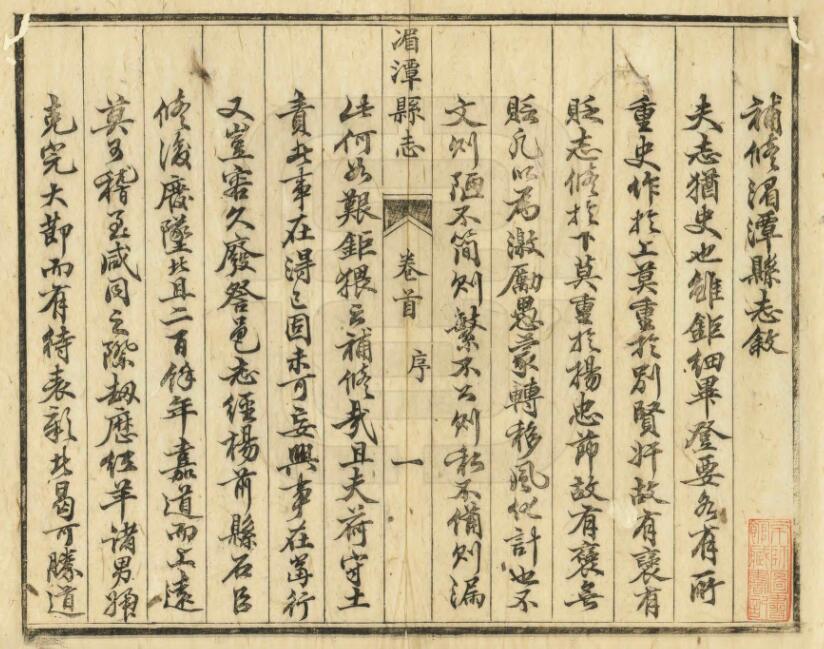 補修湄潭縣志敘
夫志猶史也雖鉅細畢登要各有所
重史作於上莫重於別賢奸故有褒有
貶志修於下莫重於揚忠節故有褒無
貶凡以為激勵愚蒙轉移風化計也不
文則陋不簡則繁不公則私不備則漏
湄潭縣志
卷首
序
一
此何如艱鉅猥云補修哉且夫荷守土
責此事在得已固未可妄興事在當行
又豈容久廢咎邑志經楊前縣石臣
修後廢墜者且二百餘年嘉道而上遠
莫可稽至咸同之際刼歷紅羊諸男婦
克完大節而有待表彰者曷可勝道